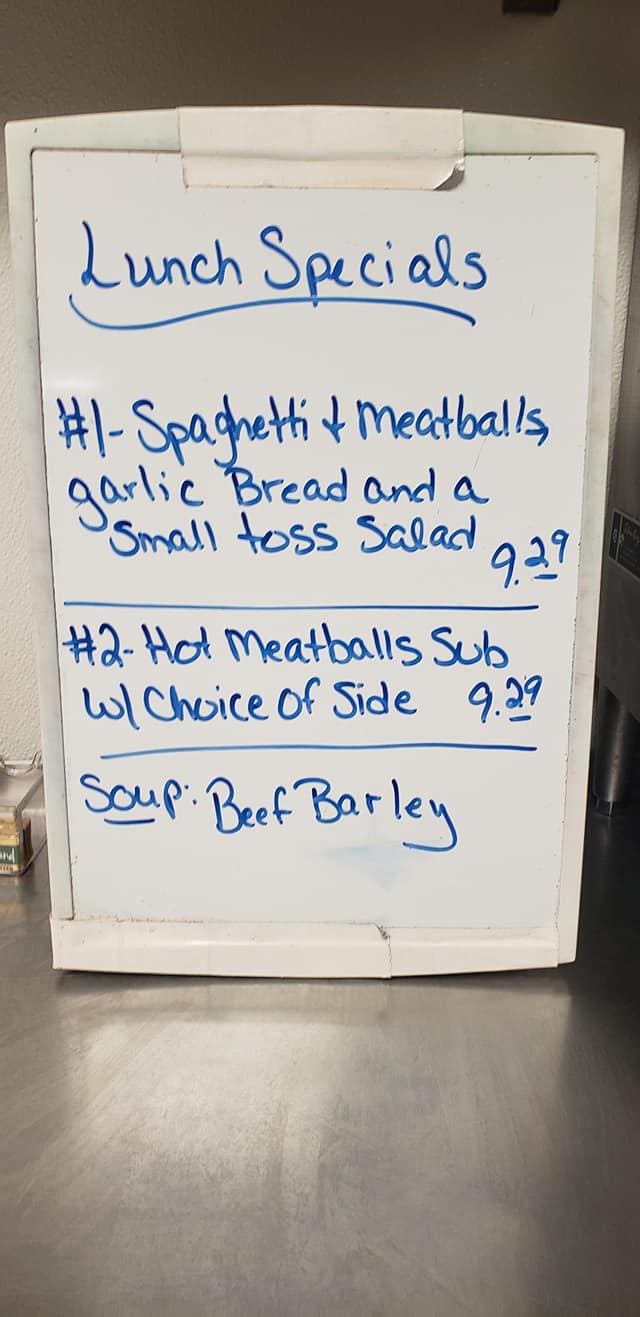 Lunch Specials
#1- Spaghetti & Meatballs,
garlic Bread and a
Small toss Salad 9.29
#2- Hot Meatballs Sub
w/ Choice Of Side 9.29
Soup: Beef Barley